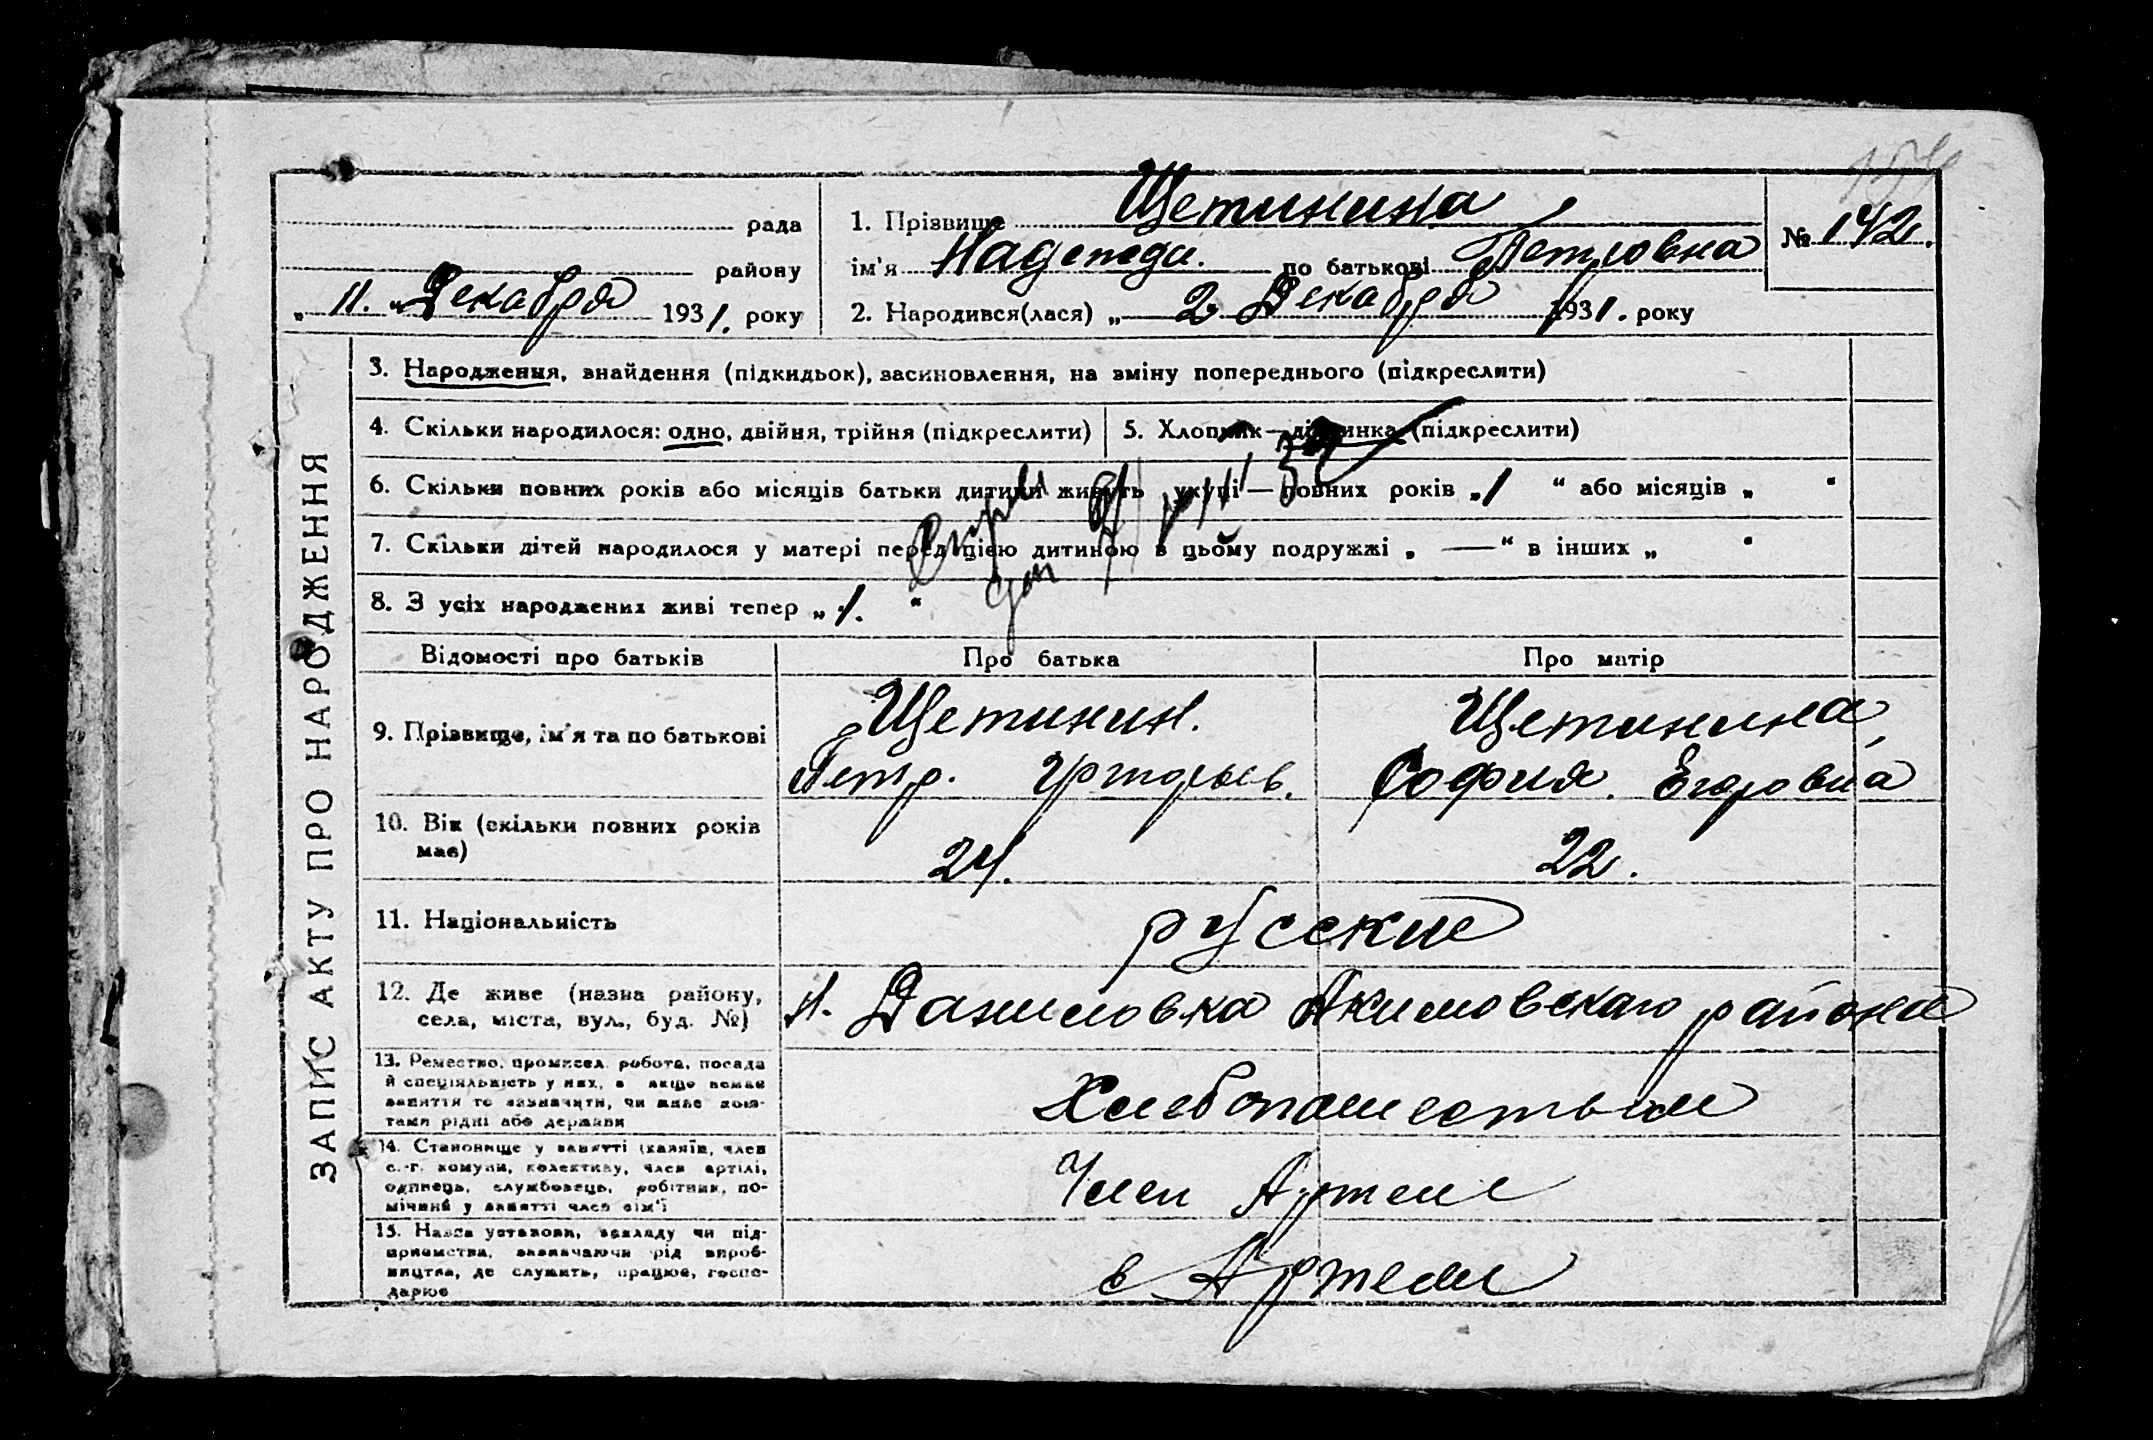 154
рада
1. Прізвище Щетинина
№ 142.
району
ім'я по батькові Петровна
„ 11. “ Декабря 1931. року
2. Народився(лася) „ 2 Декабря 1931. року
ЗАПИС АКТУ ПРО НАРОДЖЕННЯ
3. Народження, знайдення (підкидьок), засиновлення, на зміну попереднього (підкреслити)
4. Скільки народилося: одно, двійня, трійня (підкреслити)
5. Хлопчик — дівчинка (підкреслити)
6. Скільки повних років або місяців батьки дитини живуть укупі — повних років „ 1 “ або місяців „ “
7. Скільки дітей народилося у матері перед цією дитиною в цьому подружжі „ — “ в інших „ “
8. З усіх народжених живі тепер „ 1. “
Відомості про батьків
Про батька
Про матір
9. Прізвище, ім'я та по батькові
Щетинин.
Петр. Григорьев.
Щетинина,
София. Егоровна
10. Вік (скільки повних років
має)
24.
22.
11. Національність
русские
12. Де живе (назва району,
села, міста, вул., буд. №)
Даниловка Акимовскаго района
13. Ремество, промисел, робота, посада
й спеціяльність у них, а якщо немає
заняття то зазначити, чи живе кош-
тами рідні або держави
14. Становище у занятті (хазяїн, член
с.-г. комуни, колективу, член артілі,
одинець, службовець, робітник, по-
мічний у занятті член сім'ї
Член Артели
15. Назва установи, закладу чи під-
приємства, зазначаючи рід вироб-
ництва, де служить, працює, госпо-
дарює
в Артели